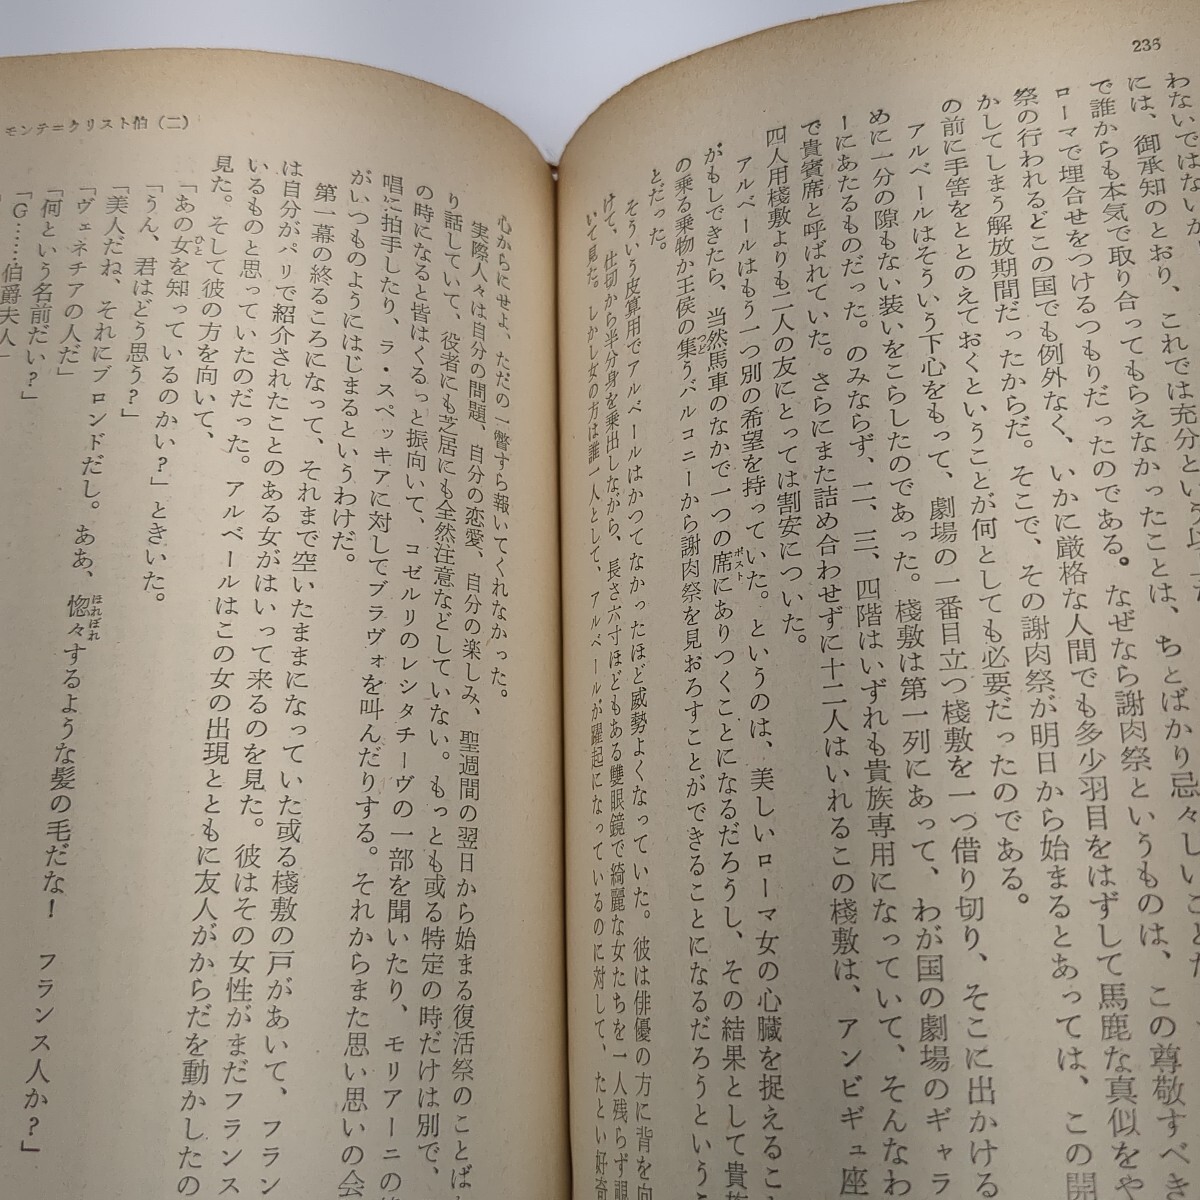 236
わないではないか
には、御承知のとおり、これでは充分という以
で誰からも本気で取り合ってもらえなかったことは、ちとばかり忌々しいことだ
ローマで埋合せをつけるつもりだったのである。なぜなら謝肉祭というものは、この尊敬すべき
祭の行われるどこの国でも例外なく、いかに厳格な人間でも多少羽目をはずして馬鹿な真似をや
かしてしまう解放期間だったからだ。そこで、その謝肉祭が明日から始まるとあっては、この開
の前に手筈をととのえておくということが何としても必要だったのである。
アルベールはそういう下心をもって、劇場の一番目立つ棧敷を一つ借り切り、そこに出かける
めに一分の隙もない装いをこらしたのであった。棧敷は第一列にあって、わが国の劇場のギャラ
ーにあたるものだった。のみならず、二、三、四階はいずれも貴族専用になっていて、そんなわ
で貴賓席と呼ばれていた。さらにまた詰め合わせずに十二人はいれるこの棧敷は、アンビギュ座
四人用棧敷よりも二人の友にとっては割安についた。
アルベールはもう一つ別の希望を持っていた。というのは、美しいローマ女の心臓を捉えるこ
がもしできたら、当然馬車のなかで一つの席にありつくことになるだろうし、その結果として貴族
の乗る乗物か王侯の集うバルコニーから謝肉祭を見おろすことができることになるだろうというこ
とだった。
そういう皮算用でアルベールはかつてなかったほど威勢よくなっていた。彼は俳優の方に背を向
けて、仕切から半分身を乗出しながら、長さ六寸ほどもある雙眼鏡で綺麗な女たちを一人残らず覗
いて見た。しかし女の方は誰一人として、アルベールが躍起になっているのに対して、たとい好奇
モンテ=クリスト伯(二)
心からにせよ、ただの一瞥すら報いてくれなかった。
実際人々は自分の問題、自分の恋愛、自分の楽しみ、聖週間の翌日から始まる復活祭のことば
り話していて、役者にも芝居にも全然注意などしていない。もっとも或る特定の時だけは別で、
の時になると皆はくるっと振向いて、コゼルリのレシタチーヴの一部を聞いたり、モリアーニの
唱に拍手したり、ラ・スペッキアに対してブラヴォを叫んだりする。それからまた思い思いの会
がいつものようにはじまるというわけだ。
第一幕の終るころになって、それまで空いたままになっていた或る棧敷の戸があいて、フラン
は自分がパリで紹介されたことのある女がはいって来るのを見た。彼はその女性がまだフランス
いるものと思っていたのだった。アルベールはこの女の出現とともに友人がからだを動かしたの
見た。そして彼の方を向いて、
「あの女を知っているのかい?」ときいた。
「うん、君はどう思う?」
「美人だね、それにブロンドだし。ああ、惚々するような髪の毛だな! フランス人か?」
「ヴェネチアの人だ」
「何という名前だい?」
「G……伯爵夫人」